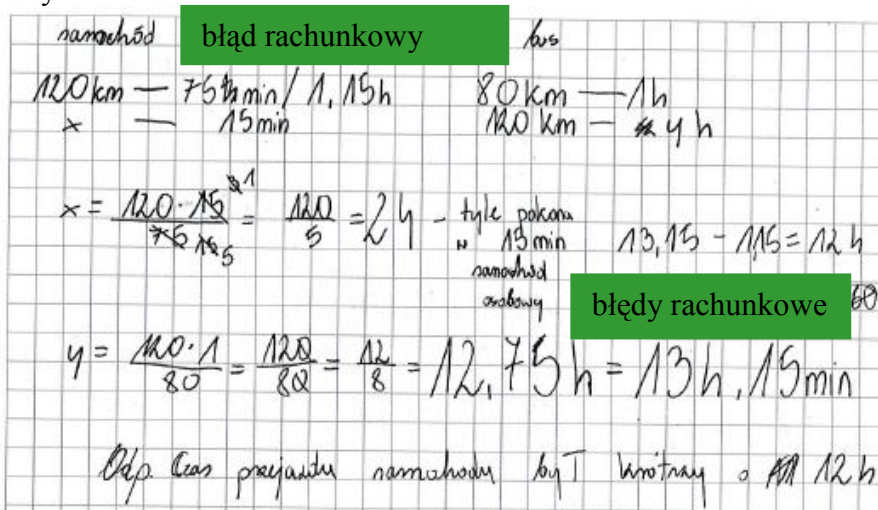 samochód błąd rachunkowy bus
120 km — 75 min / 1,15h 80km — 1h
x — 15min 120 km — y h
x = 120·15 / 75 = 120 / 5 = 24 - tyle pokona
w 15 min 13,15 - 1,15 = 12 h
samochód
osobowy błędy rachunkowe 60
y = 120·1 / 80 = 120 / 80 = 12 / 8 = 12,75 h = 13h, 15min
Odp. Czas przejazdu samochodu był krótszy o 12 h